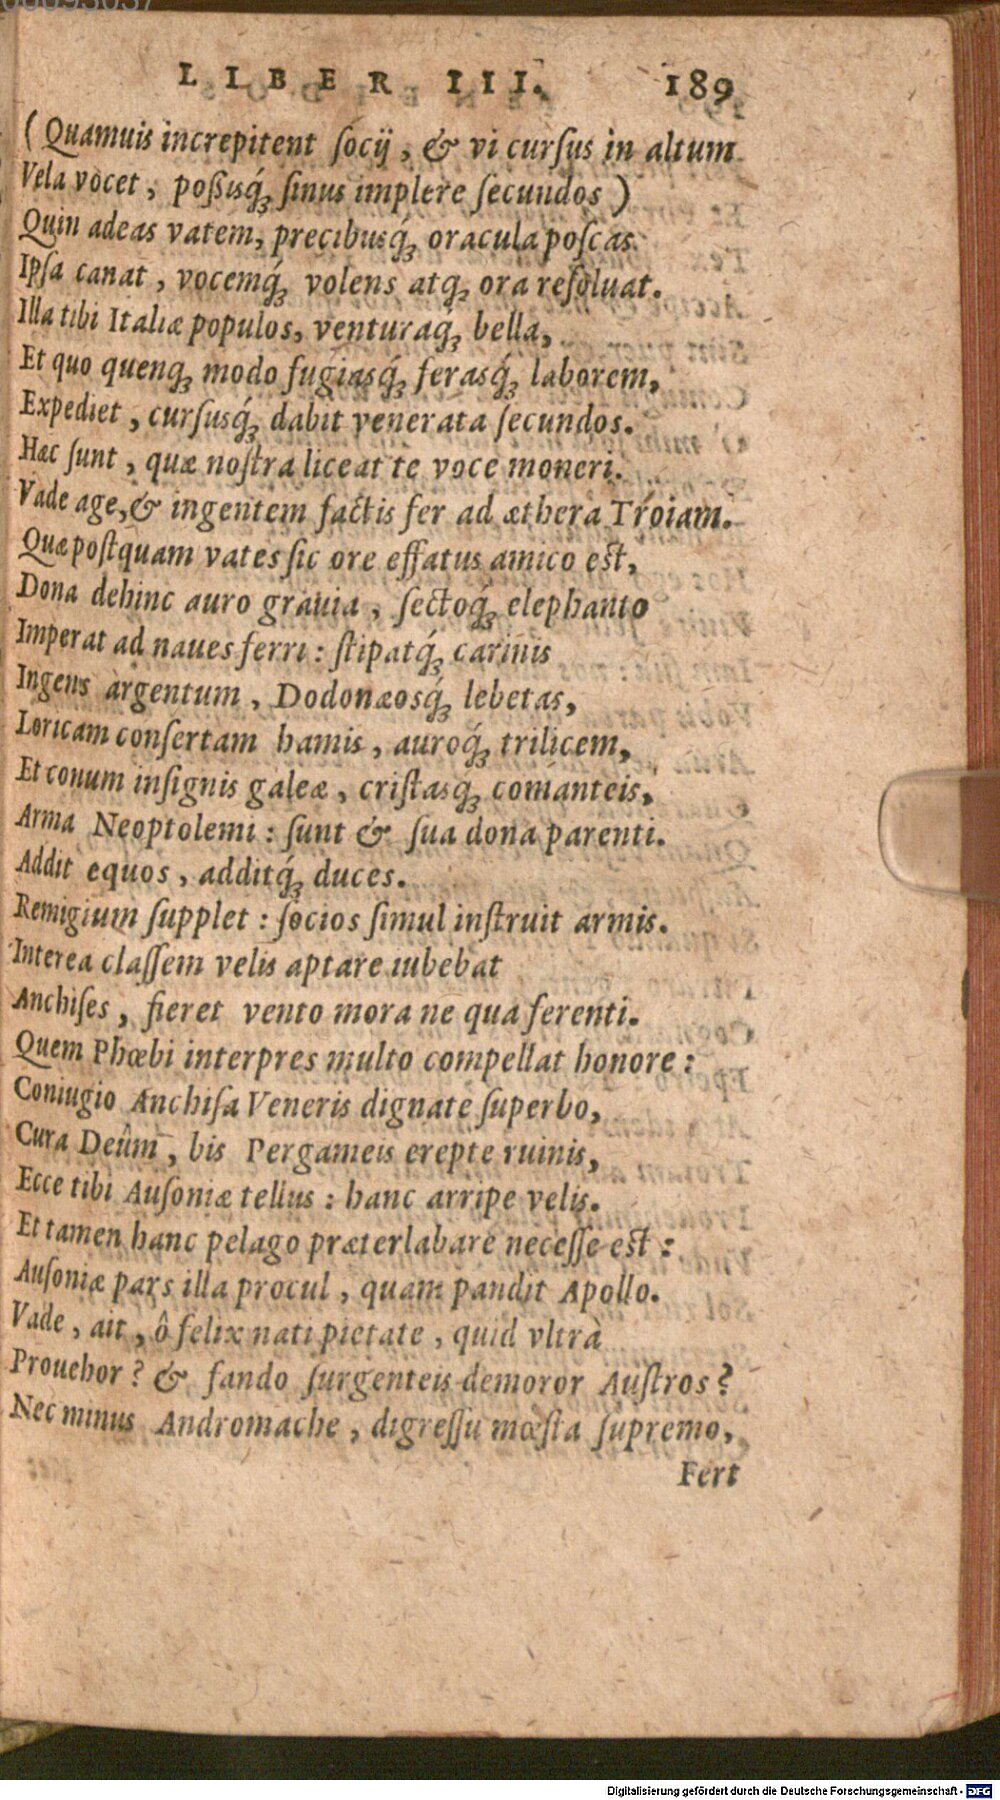 00093037
LIBER III. 189
(Quamuis increpitent ſocij, & vi curſus in altum
Vela vocet, poßisq́ʒ ſinus implere ſecundos)
Quin adeas vatem, precibusq́ʒ oracula poſcas
Ipſa canat, vocemq́ʒ volens atqʒ ora reſoluat.
Illa tibi Italiæ populos, venturaq́ʒ bella,
Et quo quenqʒ modo fugiasq́ʒ ferasq́ʒ laborem,
Expediet, curſusq́ʒ dabit venerata ſecundos.
Hæc ſunt, quæ noſtra liceat te voce moneri.
Vade age, & ingentem factis fer ad æthera Tróiam.
Quæ poſtquam vates ſic ore effatus amico eſt,
Dona dehinc auro grauia, ſectoq́ʒ elephanto
Imperat ad naues ferri: ſtipatq́ʒ carinis
Ingens argentum, Dodonæosq́ʒ lebetas,
Loricam conſertam hamis, auroq́ʒ trilicem,
Et conum inſignis galeæ, criſtasqʒ comanteis,
Arma Neoptolemi: ſunt & ſua dona parenti.
Addit equos, additq́ʒ duces.
Remigium ſupplet: ſocios ſimul inſtruit armis.
Interea claſſem velis aptare iubebat
Anchiſes, fieret vento mora ne qua ferenti.
Quem Phœbi interpres multo compellat honore:
Coniugio Anchiſa Veneris dignate ſuperbo,
Cura Deûm, bis Pergameis erepte ruinis,
Ecce tibi Auſoniæ tellus: hanc arripe velis.
Et tamen hanc pelago præterlabare neceſſe eſt:
Auſoniæ pars illa procul, quam pandit Apollo.
Vade, ait, ô felix nati pietate, quid vltrà
Prouehor? & fando ſurgenteis demoror Auſtros?
Nec minus Andromache, digreſſu mœſta ſupremo,
Fert
Digitalisierung gefördert durch die Deutsche Forschungsgemeinschaft - DFG